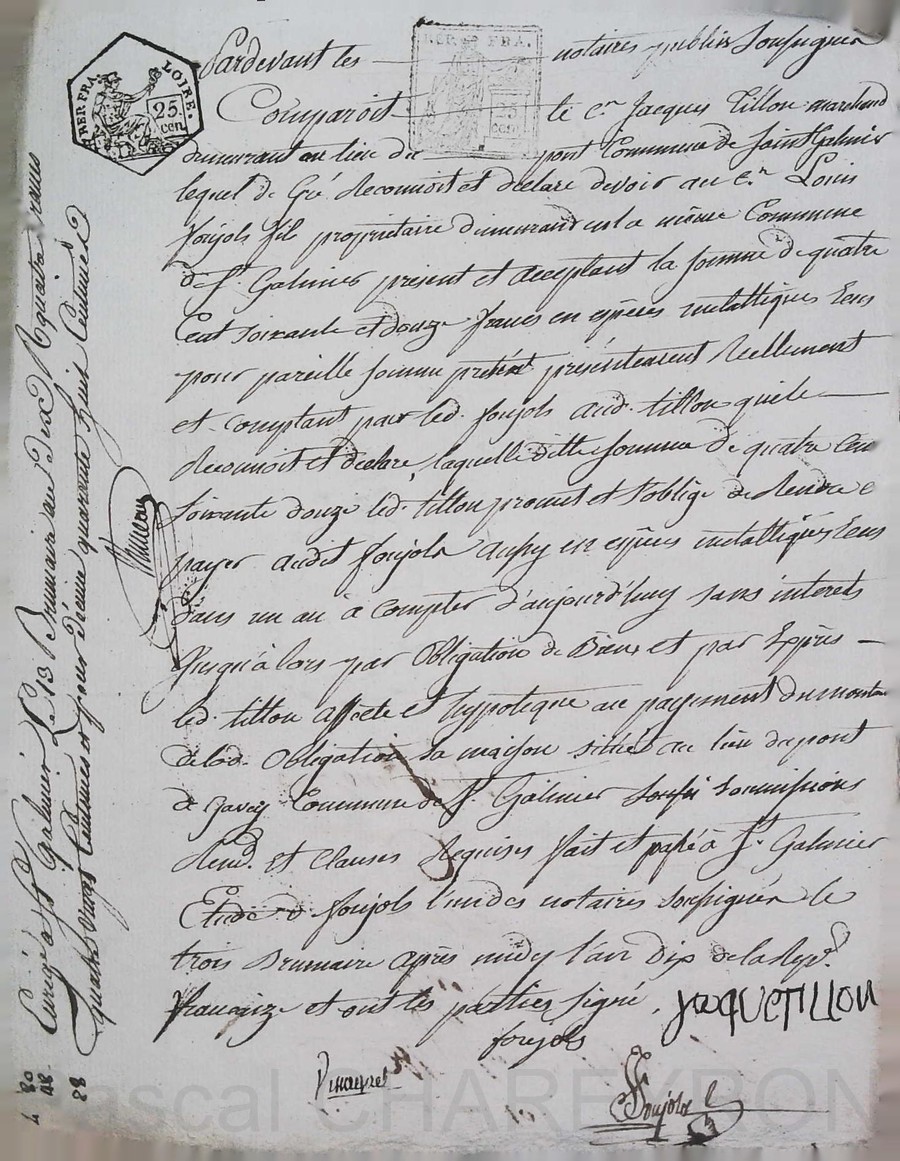 REP. FRA. LOIRE. 25 cen
REP. FRA. 25 cen
Pardevant les notaires publics soussignés
Comparoit le c.en Jacques Tillon marchand
demeurant au lieu du pont Commune de Saint Galmier
lequel de Gré Reconnoit et declare devoir au C.en Louis
foujols fils propriétaire demeurant en la même Commune
de S.t Galmier present et acceptant la somme de quatre
Cent soixante et douze francs en espèces metalliques sens
pour pareille somme présentement Reellement
et comptant par led. foujols aud. tillon qui le
Reconnoit et declare, laquelle ditte somme de quatre Cen
soixante douze led. tillon promet et s'oblige de Rendre e
payer audit foujols aussy en espèces metalliques sens
dans un an à compter d'aujourd'huy sans interets
jusqu'à lors par obligation de Biens et par Exprès
led. tillon affecte et hypoteque au payement du montan
de lad. obligation sa maison située au lieu du pont
de Commune de S.t Galmier soumissions
Rend. et clauses Requises fait et passé à S.t Galmier
Etude de foujols l'un des notaires soussignés le
trois Brumaire après midy l'an Dix de la Rep.
francaize et ont les parties signé. jaqUeTiLLON
foujols
foujols
Enregé a S.t Galmier Le 13 Brumaire an dix Rt quatre francs
quatre vingt Centimes et pour décime quarante huit Centimes
4 80
48
28
Pascal CHAREYRON